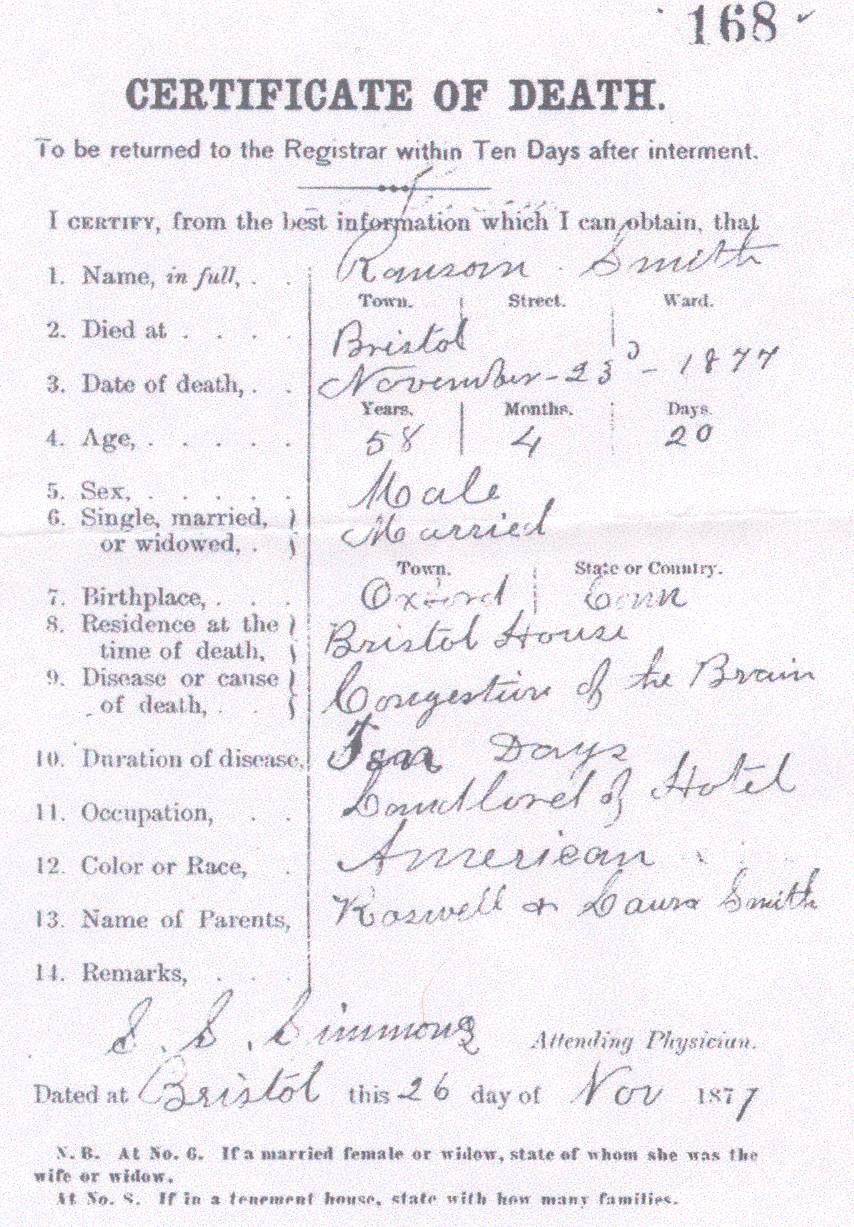 168
CERTIFICATE OF DEATH.
To be returned to the Registrar within Ten Days after interment.
I CERTIFY, from the best information which I can obtain, that
1. Name, in full, . . Ransom Smith
Town. Street. Ward.
2. Died at . . . . Bristol
3. Date of death, . . November - 23d - 1877
Years. Months. Days.
4. Age, . . . . . 58 4 20
5. Sex, . . . . . Male
6. Single, married, or widowed, . Married
Town. State or Country.
7. Birthplace, . . . Oxford Conn
8. Residence at the time of death, Bristol House
9. Disease or cause of death, . . Congestion of the Brain
10. Duration of disease, Ten Days
11. Occupation, . . Landlord of Hotel
12. Color or Race, . American
13. Name of Parents, Roswell & Laura Smith
14. Remarks, . . .
S. S. Simmons Attending Physician.
Dated at Bristol this 26 day of Nov 1877
N. B. At No. 6. If a married female or widow, state of whom she was the
wife or widow.
At No. 8. If in a tenement house, state with how many families.